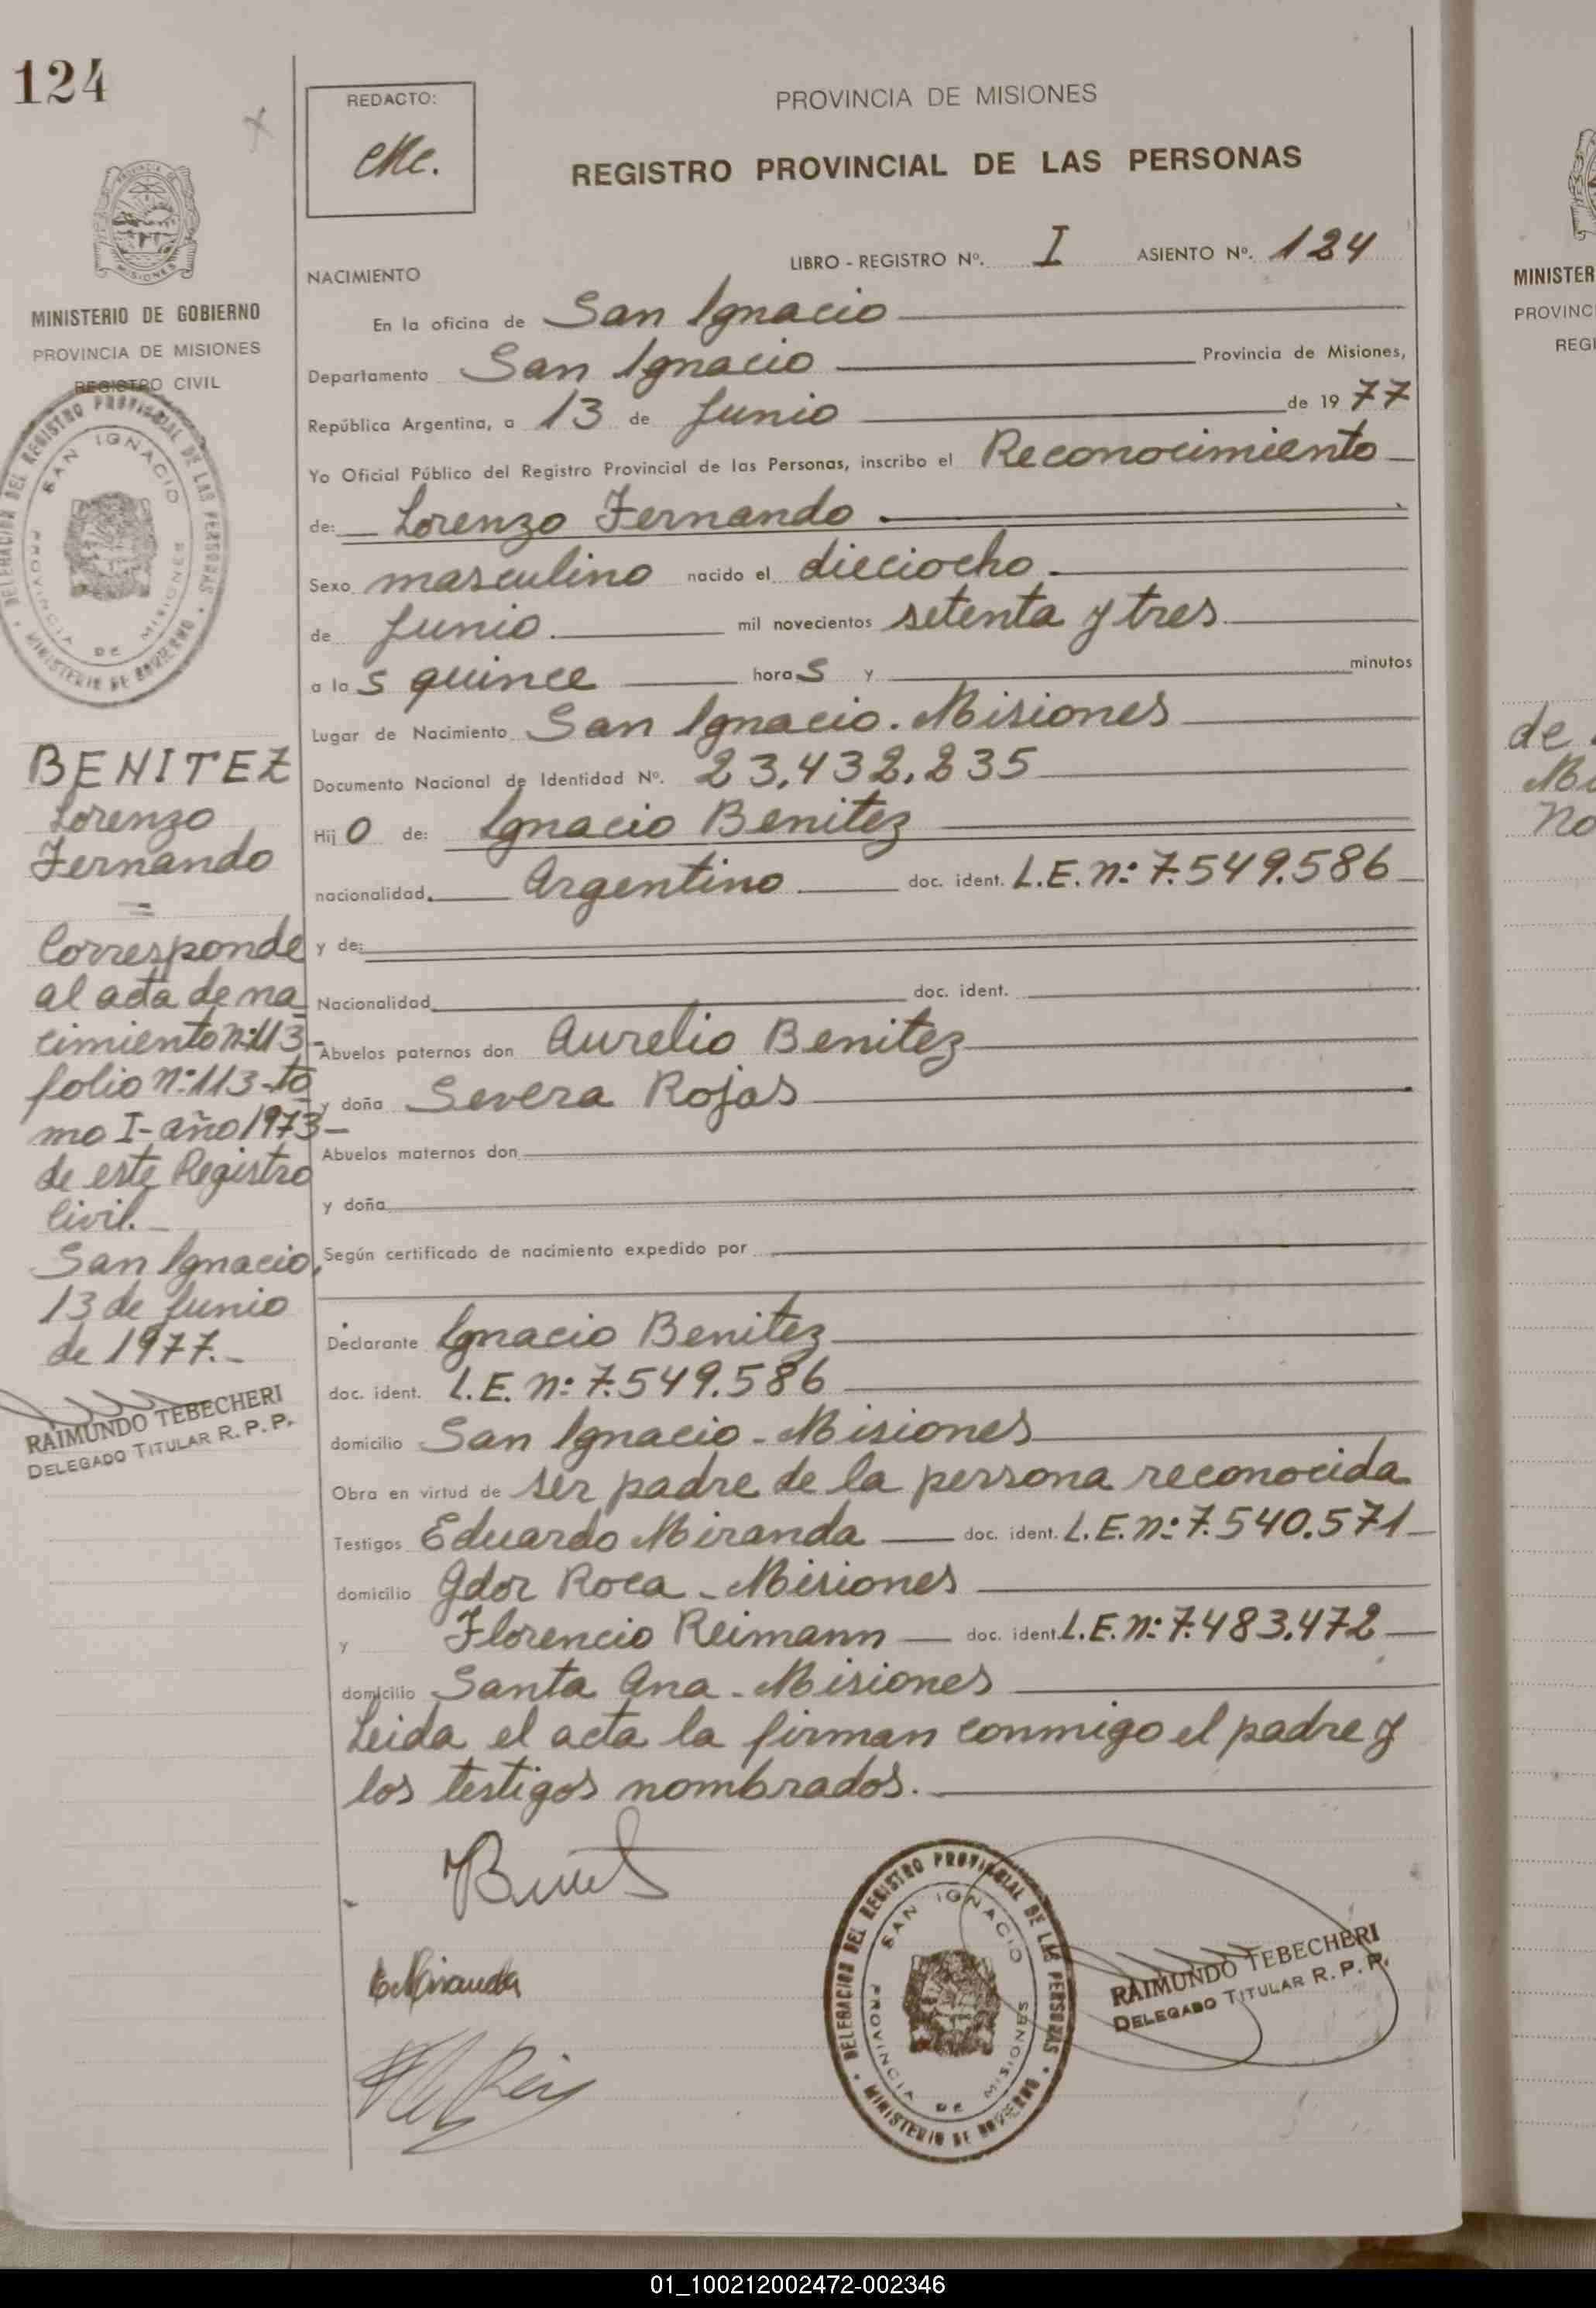 124
REDACTO:
PROVINCIA DE MISIONES
REGISTRO PROVINCIAL DE LAS PERSONAS
LIBRO - REGISTRO Nº. I ASIENTO Nº. 124
NACIMIENTO
En la oficina de San Ignacio
Departamento San Ignacio Provincia de Misiones,
República Argentina, a 13 de Junio de 1977
Yo Oficial Público del Registro Provincial de las Personas, inscribo el Reconocimiento
de: Lorenzo Fernando
Sexo masculino nacido el dieciocho
de Junio. mil novecientos setenta y tres
a las quince horas y minutos
Lugar de Nacimiento San Ignacio. Misiones
Documento Nacional de Identidad Nº. 23.432.235
Hijo de: Ignacio Benitez
nacionalidad. Argentino doc. ident. L.E. nº 7.549.586
y de:
Nacionalidad doc. ident.
Abuelos paternos don Aurelio Benitez
y doña Severa Rojas
Abuelos maternos don
y doña
Según certificado de nacimiento expedido por
Declarante Ignacio Benitez
doc. ident. L.E. nº 7.549.586
domicilio San Ignacio - Misiones
Obra en virtud de ser padre de la persona reconocida
Testigos Eduardo Miranda doc. ident. L.E. nº 7.540.571
domicilio Gdor Roca - Misiones
y Florencio Reimann doc. ident. L.E. nº 7.483.472
domicilio Santa Ana - Misiones
Leida el acta la firman conmigo el padre y
los testigos nombrados.
MINISTERIO DE GOBIERNO
PROVINCIA DE MISIONES
REGISTRO CIVIL
DELEGACION DEL REGISTRO PROVINCIAL DE LAS PERSONAS
MINISTERIO DE GOBIERNO
SAN IGNACIO
PROVINCIA DE MISIONES
BENITEZ
Lorenzo
Fernando
Corresponde
al acta de na
cimiento nº 113-
folio nº 113-to
mo I- año 1973-
de este Registro
Civil.-
San Ignacio,
13 de Junio
de 1977.-
RAIMUNDO TEBECHERI
DELEGADO TITULAR R. P. P.
DELEGACION DEL REGISTRO PROVINCIAL DE LAS PERSONAS
MINISTERIO DE GOBIERNO
SAN IGNACIO
PROVINCIA DE MISIONES
RAIMUNDO TEBECHERI
DELEGADO TITULAR R. P. P.
MINISTER
PROVINC
REGI
de
No
01_100212002472-002346